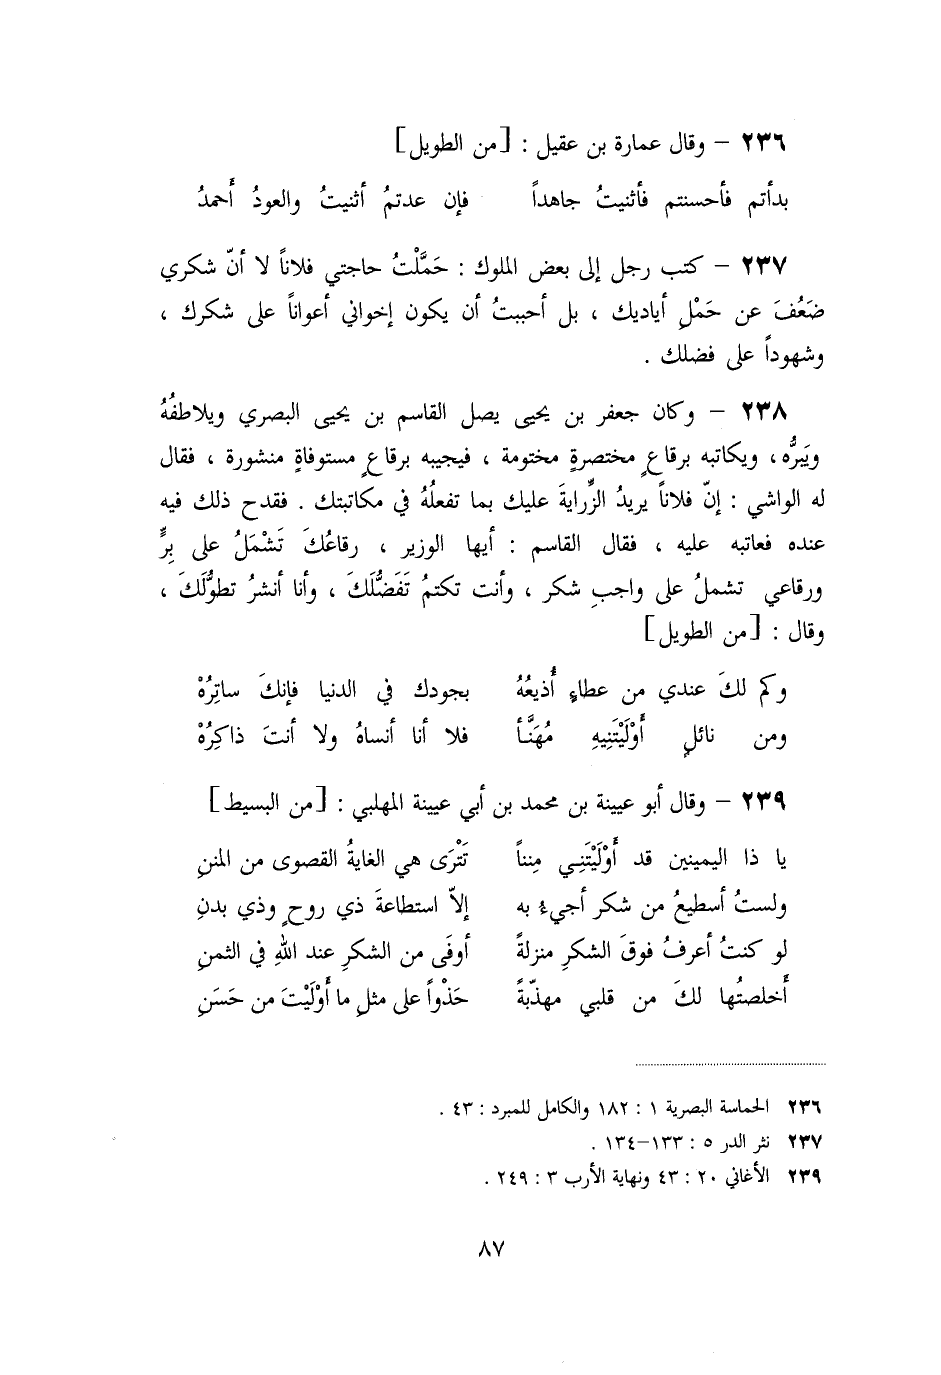 ٢٣٦ – وقال عمارة بن عقيل : [من الطويل]
بدأتم فأحسنتم فأثنيتُ جاهداً فإن عدتمُ أثنيتُ والعودُ أَحمدُ
٢٣٧ – كتب رجل إلى بعض الملوك : حَمَّلْتُ حاجتي فلاناً لا أنّ شكري
ضَعُفَ عن حَمْلِ أياديك ، بل أحببتُ أن يكون إخواني أعواناً على شكرك ،
وشهوداً على فضلك .
٢٣٨ – وكان جعفر بن يحيى يصل القاسم بن يحيى البصري ويلاطفُهُ
ويَبرُّه ، ويكاتبه برقاعٍ مختصرةٍ مختومة ، فيجيبه برقاعٍ مستوفاةٍ منشورة ، فقال
له الواشي : إنّ فلاناً يريدُ الزِّرايةَ عليك بما تفعلُهُ في مكاتبتك . فقدح ذلك فيه
عنده فعاتبه عليه ، فقال القاسم : أيها الوزير ، رقاعُكَ تَشْمَلُ على بِرٍّ
ورقاعي تشملُ على واجبِ شكر ، وأنت تكتمُ تَفَضُّلَكَ ، وأنا أنشرُ تطوُّلَكَ ،
وقال : [من الطويل]
وكم لكَ عندي من عطاءٍ أُذيعُهُ بجودك في الدنيا فإنكَ ساتِرُهْ
ومن نائلٍ أَوْلَيْتَنِيهِ مُهَنَّأ فلا أنا أنساهُ ولا أنتَ ذاكِرُهْ
٢٣٩ – وقال أبو عيينة بن محمد بن أبي عيينة المهلبي : [من البسيط]
يا ذا اليمينين قد أَوْلَيْتَنِي مِنناً تَتْرَى هي الغايةُ القصوى من المننِ
ولستُ أسطيعُ من شكر أجيءُ به إلاّ استطاعةَ ذي روحٍ وذي بدنِ
لو كنتُ أعرفُ فوقَ الشكرِ منزلةً أوفَى من الشكرِ عند اللهِ في الثمنِ
أَخلصتُها لكَ من قلبي مهذّبةً حَذْواً على مثلِ ما أَوْلَيْتَ من حَسَنِ
٢٣٦ الحماسة البصرية ١ : ١٨٢ والكامل للمبرد : ٤٣ .
٢٣٧ نثر الدر ٥ : ١٣٣–١٣٤ .
٢٣٩ الأغاني ٢٠ : ٤٣ ونهاية الأرب ٣ : ٢٤٩ .
٨٧